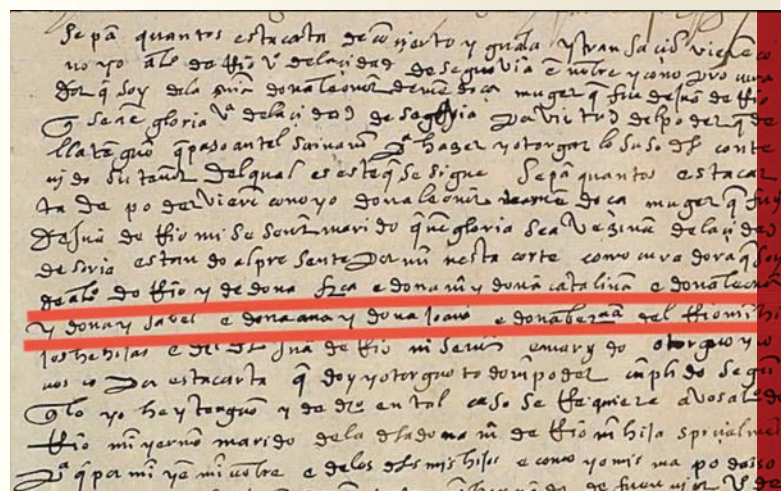 Sepã quantos esta carta de conçierto y yguala y transaçiõ vierẽ co
mo yo alº de Rio vº de la çidad de segovia ẽ nõbre y como procura
dor q̃ soy dela srã doña leonor de mẽdoça muger q̃ fue de juã de Rio
q̃ sea ẽ gloria vª dela çidad de segovia por virtud del poder q̃ de
lla tẽguo q̃ paso antel pª hazer y otorgar lo suso dho conte
nido su tenor del qual es este q̃ se sigue Sepã quantos esta car
ta de poder vierẽ como yo doña leonor de mẽdoça muger q̃ fuy
de juã de Rio mi señor marido q̃ẽ gloria sea vezina dela çidad
de soria estando al presente por mi ẽ nesta corte como curadora q̃ soy
de alº do Rio y de doña frca e doña mª y doña catalina e doña leonor
y doña ysabel e doña ana y doña joana e doña del Rio mis hi
jos he hijas e del dho juã de Rio mi señor e marydo otorguo y co
nosco por esta carta q̃ doy y otorguo todo mi poder cũplido segũ
q̃ lo yo he y tenguo y de drº en tal caso se Requiere a vos alº de
Rio mi yerno marido dela dha doña mª de Rio mi hija spicialmẽ
pª q̃ por mi y ẽ mi nõbre e delos dhos mis hijos e como yo misma podaiso